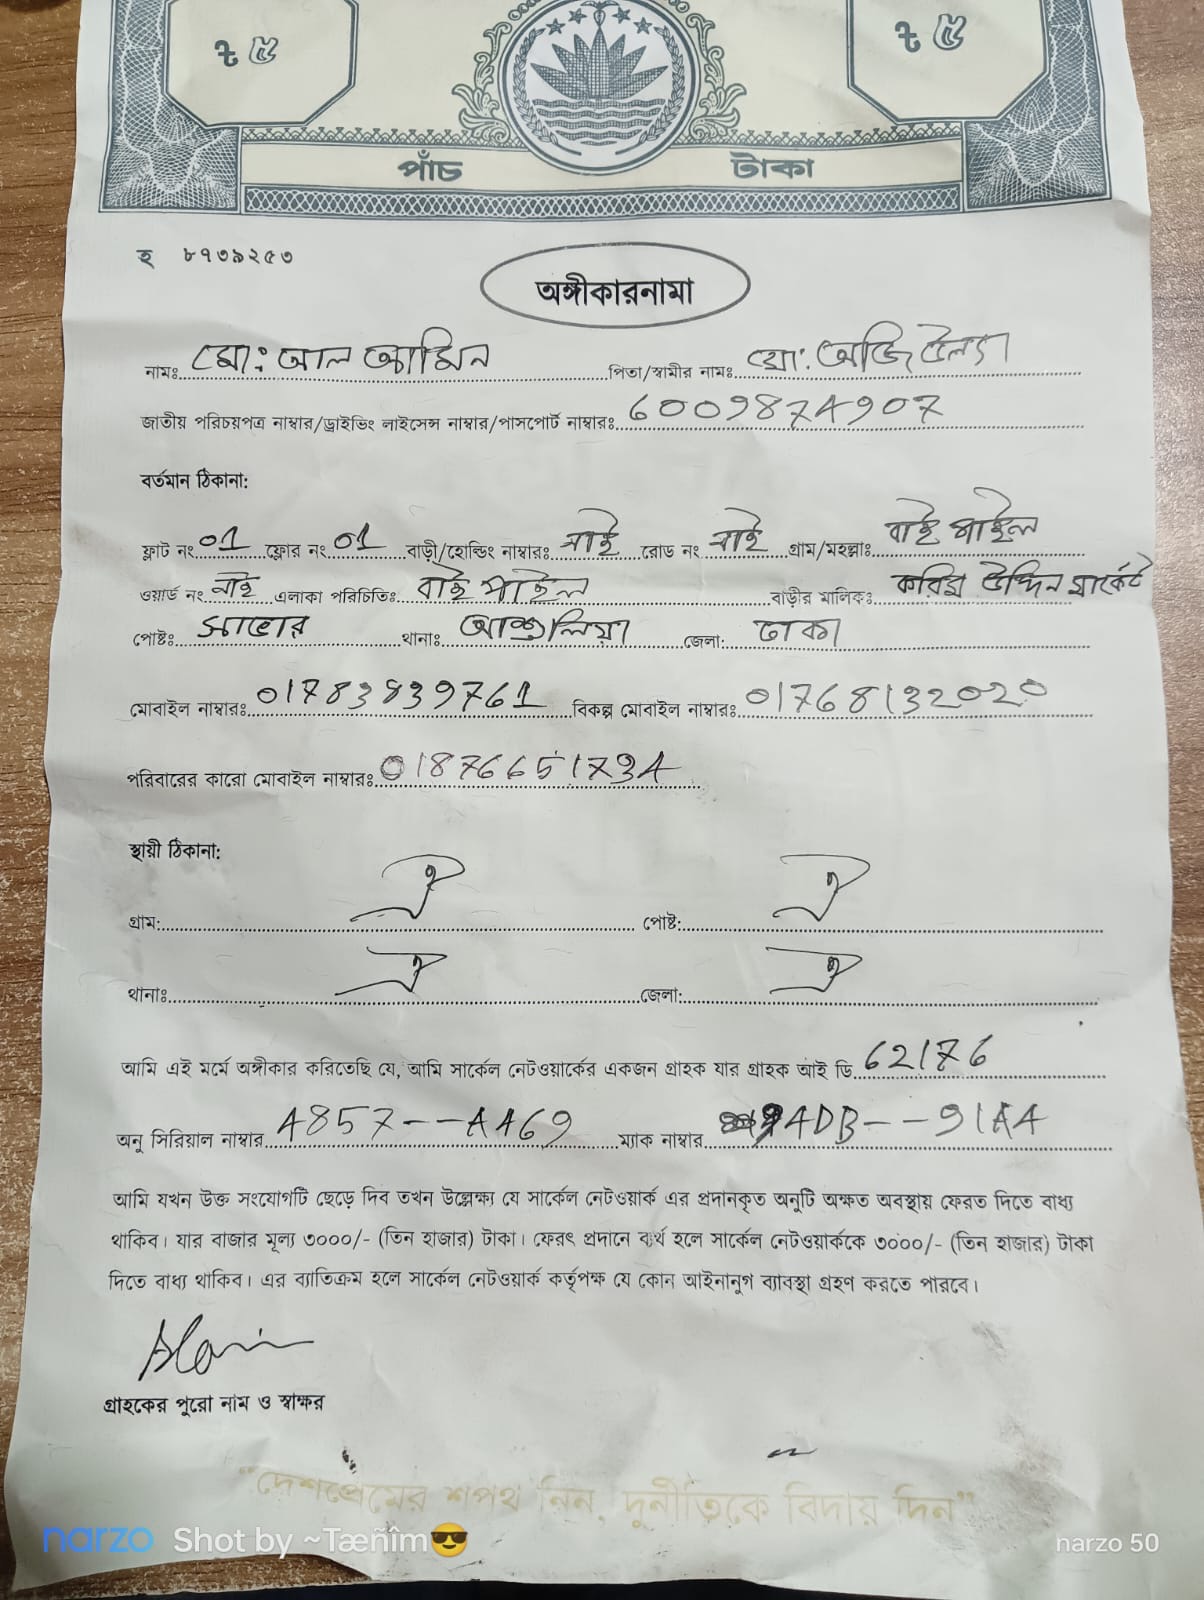 ৳ ৫ ৳ ৫
পাঁচ টাকা
হ ৮৭৩৯২৫৩
অঙ্গীকারনামা
নামঃ মো: আল আমিন পিতা/স্বামীর নামঃ মো: অজি উল্যা
জাতীয় পরিচয়পত্র নাম্বার/ড্রাইভিং লাইসেন্স নাম্বার/পাসপোর্ট নাম্বারঃ 6009874907
বর্তমান ঠিকানা:
ফ্লাট নং 01 ফ্লোর নং 01 বাড়ী/হোল্ডিং নাম্বারঃ নাই রোড নং নাই গ্রাম/মহল্লাঃ বাই পাইল
ওয়ার্ড নং নাই এলাকা পরিচিতিঃ বাই পাইল বাড়ীর মালিকঃ কবির উদ্দিন মার্কেট
পোষ্টঃ সাভার থানাঃ আশুলিয়া জেলা: ঢাকা
মোবাইল নাম্বারঃ 01783839761 বিকল্প মোবাইল নাম্বারঃ 01768132020
পরিবারের কারো মোবাইল নাম্বারঃ 01876651734
স্থায়ী ঠিকানা:
গ্রাম: ঐ পোষ্ট: ঐ
থানাঃ ঐ জেলা: ঐ
আমি এই মর্মে অঙ্গীকার করিতেছি যে, আমি সার্কেল নেটওয়ার্কের একজন গ্রাহক যার গ্রাহক আই ডি 62176
অনু সিরিয়াল নাম্বার A857--AA69 ম্যাক নাম্বার 4DB--91AA
আমি যখন উক্ত সংযোগটি ছেড়ে দিব তখন উল্লেক্ষ্য যে সার্কেল নেটওয়ার্ক এর প্রদানকৃত অনুটি অক্ষত অবস্থায় ফেরত দিতে বাধ্য
থাকিব। যার বাজার মূল্য ৩০০০/- (তিন হাজার) টাকা। ফেরৎ প্রদানে ব্যর্থ হলে সার্কেল নেটওয়ার্ককে ৩০০০/- (তিন হাজার) টাকা
দিতে বাধ্য থাকিব। এর ব্যাতিক্রম হলে সার্কেল নেটওয়ার্ক কর্তৃপক্ষ যে কোন আইনানুগ ব্যাবস্থা গ্রহণ করতে পারবে।
গ্রাহকের পুরো নাম ও স্বাক্ষর
"দেশপ্রেমের শপথ নিন, দুর্নীতিকে বিদায় দিন"
narzo Shot by ~Tæñîm😎 narzo 50